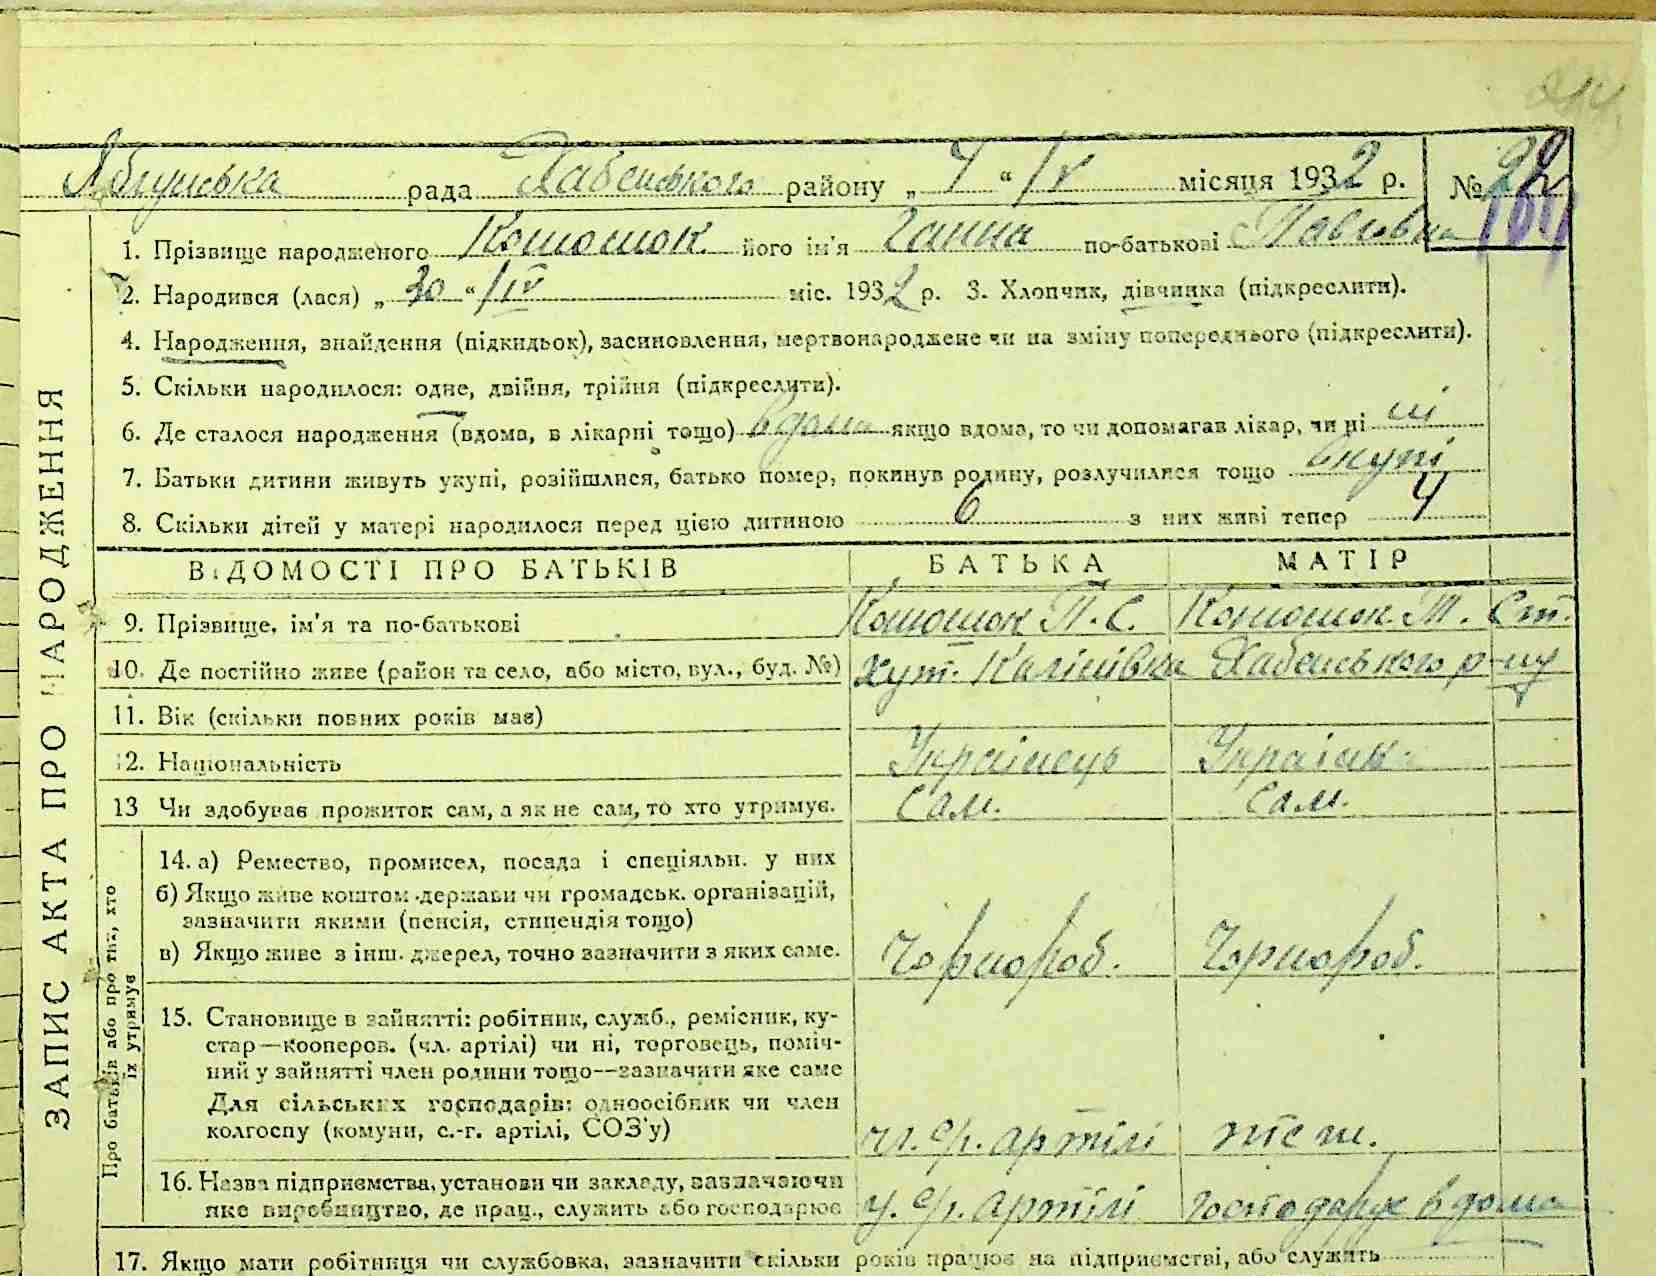 рада Хабенського району „ “ IV місяця 1932 р. №
1. Прізвище народженого його ім'я Ганна по-батькові Павловна
2. Народився (лася) „ 30 “ IV міс. 1932 р. 3. Хлопчик, дівчинка (підкреслити).
4. Народження, знайдення (підкидьок), засиновлення, мертвонароджене чи на зміну попереднього (підкреслити).
5. Скільки народилося: одне, двійня, трійня (підкреслити).
6. Де сталося народження (вдома, в лікарні тощо) вдома якщо вдома, то чи допомагав лікар, чи ні ні
7. Батьки дитини живуть укупі, розійшлися, батько помер, покинув родину, розлучилися тощо вкупі
8. Скільки дітей у матері народилося перед цією дитиною 6 з них живі тепер 4
ВІДОМОСТІ ПРО БАТЬКІВ БАТЬКА МАТІР
9. Прізвище, ім'я та по-батькові П. С. Т. Ст.
10. Де постійно живе (район та село, або місто, вул., буд. №) Хут. Хабенського р-ну
11. Вік (скільки повних років має)
12. Національність Українець Українк.
13 Чи здобуває прожиток сам, а як не сам, то хто утримує. Сам. Сам.
14. а) Ремество, промисел, посада і спеціяльн. у них
б) Якщо живе коштом держави чи громадськ. організацій,
зазначити якими (пенсія, стипендія тощо)
в) Якщо живе з інш. джерел, точно зазначити з яких саме. Чорнороб. Чорнороб.
15. Становище в зайнятті: робітник, служб., ремісник, ку-
стар—кооперов. (чл. артілі) чи ні, торговець, поміч-
ний у зайнятті член родини тощо—зазначити яке саме
Для сільських господарів: одноосібник чи член
колгоспу (комуни, с.-г. артілі, СОЗ'у) артілі
16. Назва підприємства, установи чи закладу, зазначаючи
яке виробництво, де прац., служить або господарює артілі господарує вдома
17. Якщо мати робітниця чи службовка, зазначити скільки років працює на підприємстві, або служить
ЗАПИС АКТА ПРО НАРОДЖЕННЯ
Про батьків або про тих, хто
їх утримує